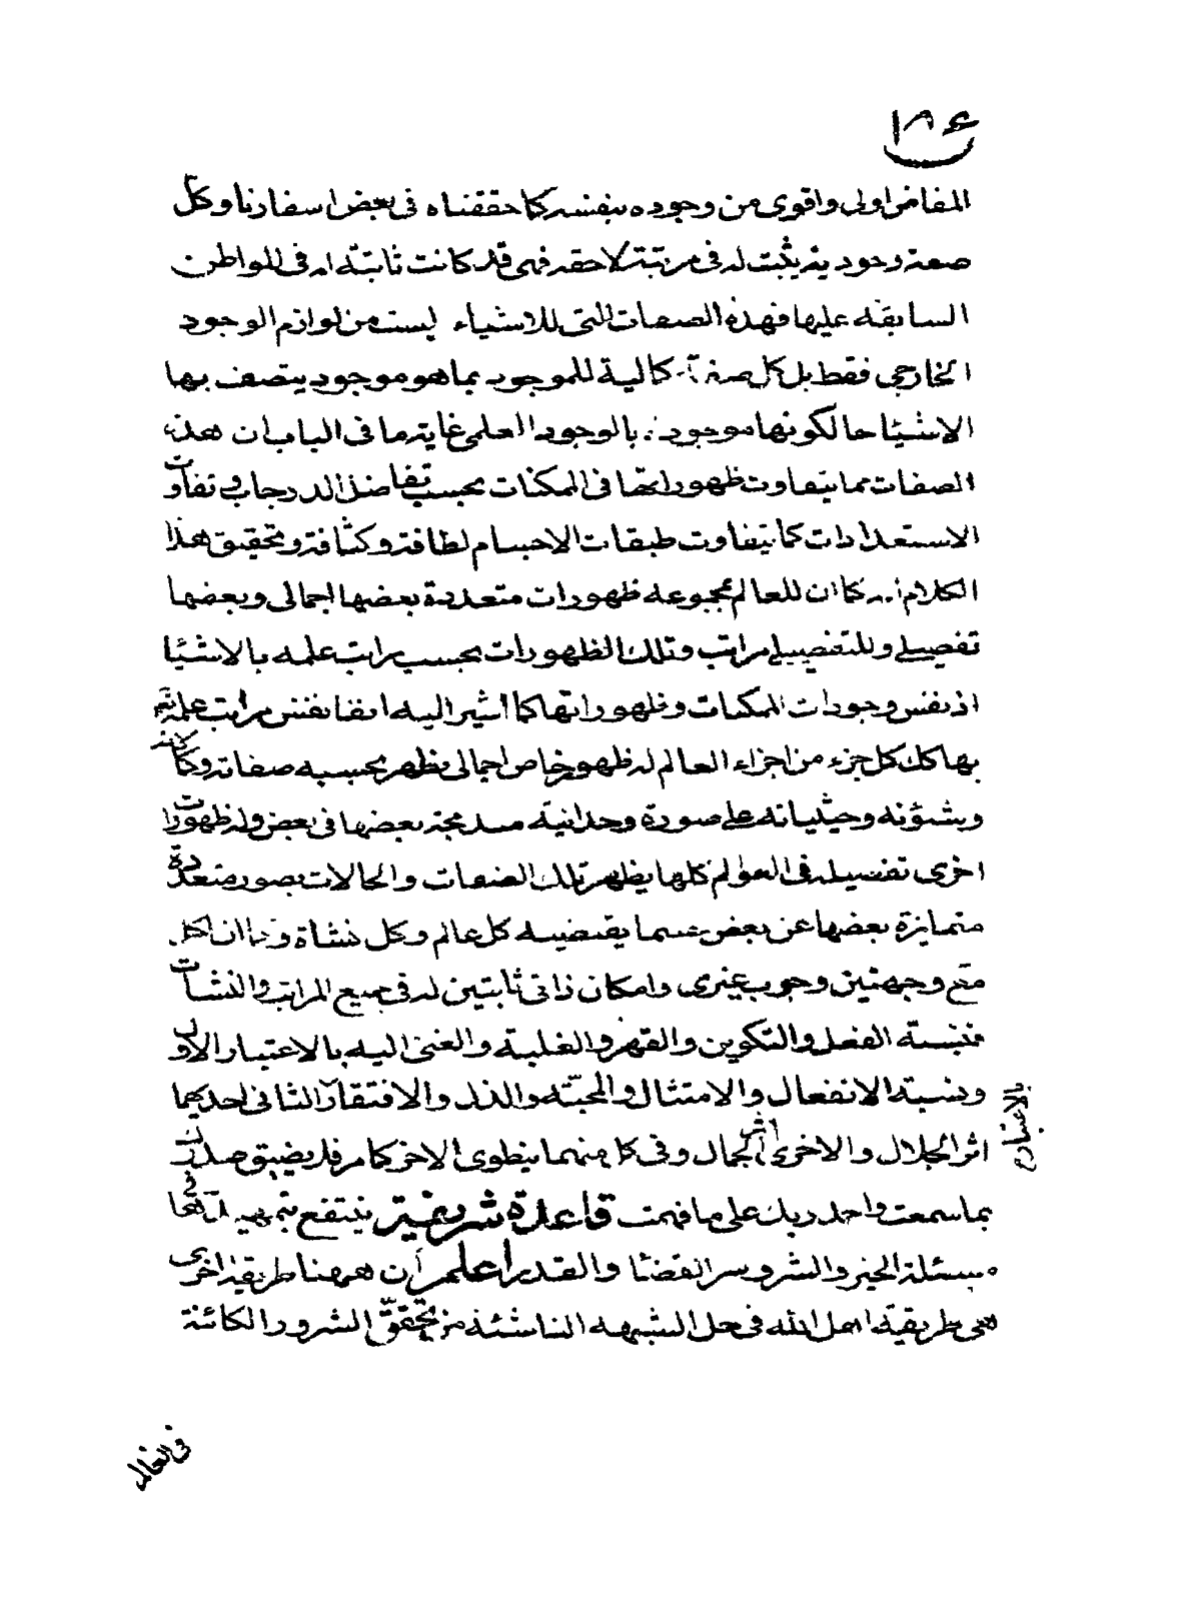 ١٨٤
المفاض اولى واقوى من وجوده بنفسه كما حققناه فى بعض اسفارنا وكل
صفة وجودية يثبت له فى مرتبة لاحقه فهى قد كانت ثابتة له فى المواطن
السابقه عليها فهذه الصفات التى للاشياء ليست من لوازم الوجود
الخارجى فقط بل كل صفة كمالية للموجود بما هو موجود يتصف بها
الاشيا حالكونها موجودة بالوجود العلمى غاية ما فى الباب ان هذه
الصفات مما يتفاوت ظهوراتها فى الممكنات بحسب تفاضل الدرجات و تفاوت
الاستعدادات كما يتفاوت طبقات الاجسام لطافة وكثافة وتحقيق هذا
الكلام انه كما ان للعالم مجموعه ظهورات متعددة بعضها اجمالى وبعضها
تفصيلى وللتفصيلى مراتب وتلك الظهورات بحسب مراتب علمه بالاشيا
اذ نفس وجودات الممكنات وظهوراتها كما اشير اليه انفا نفس مراتب علمه تعم
بها كك كل جزء من اجزاء العالم له ظهور خاص اجمالى يظهر بحسبه صفاته وكمالاته
وشئونه وحيثياته على صورة وحدانية مندمجة بعضها فى بعض وله ظهورات
اخرى تفصيليه فى العوالم كلها يظهر تلك الصفات والحالات بصور متعددة
متمايزة بعضها عن بعض حسبما يقتضيه كل عالم وكل نشاة وكما ان لكل
وجهتين وجوب غيرى وامكان ذاتى ثابتين له فى جميع المراتب والنشات
فنسبة الفعل والتكوين والقهر والغلبة والغنى اليه بالاعتبار الاول
ونسبة الانفعال والامتثال والمحبة والذل والافتقار الثانى احديهما
بالاعتبار
اثر الجلال والاخرى اثر الجمال وفى كل منهما ينطوى الاخر كما مر فلا يضيق صدرك
بما سمعت واحمد ربك على ما فهمت قاعدة شريفة ينتفع بتمهيدها فى
مسئلة الخير والشر وسر القضا والقدر اعلم ان ههنا طريقة اخرى
هى طريقة اهل الله فى حل الشبهه الناشئة من تحقق الشرور الكائنة
فى العالم